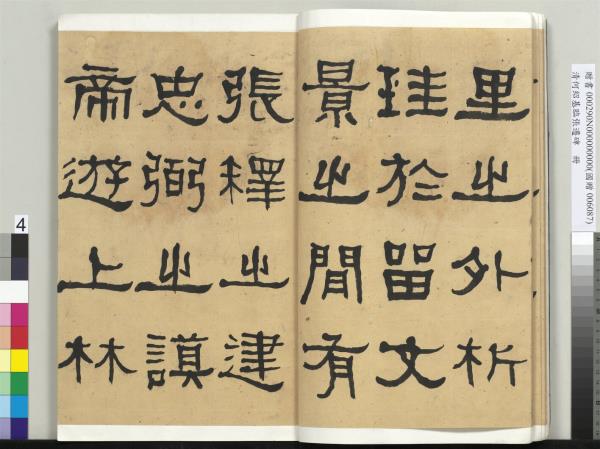 贈書 000290N000000000(國贈 006087)
清何紹基臨張遷碑 冊
里之外析
珪於留文
景之間有
張釋之建
忠弼之謨
帝遊上林
4